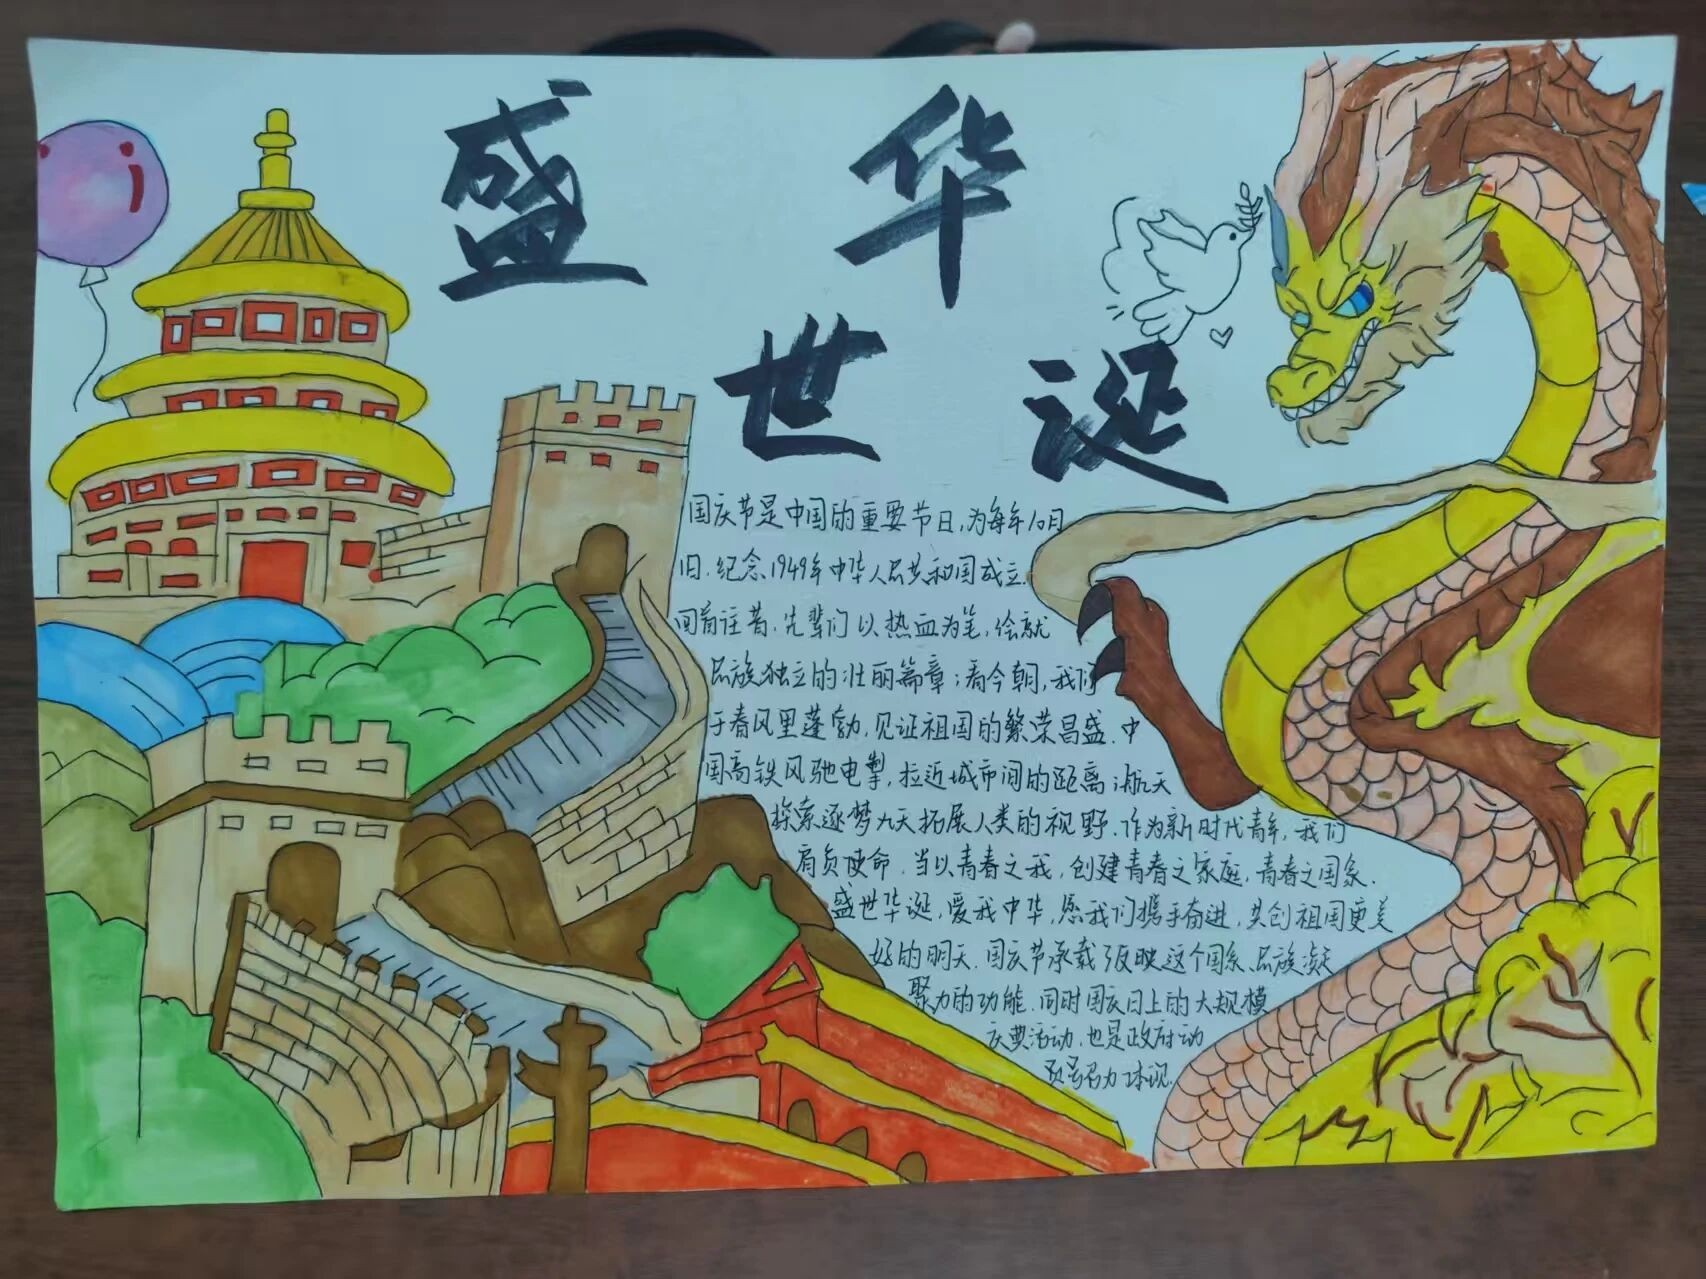 盛 华
世 诞
国庆节是中国的重要节日,为每年10月
1日.纪念1949年中华人民共和国成立.
回首往昔,先辈们以热血为笔,绘就
民族独立的壮丽篇章;看今朝,我们
于春风里蓬勃,见证祖国的繁荣昌盛.中
国高铁风驰电掣,拉近城市间的距离;航天
探索逐梦九天拓展人类的视野.作为新时代青年,我们
肩负使命.当以青春之我,创建青春之家庭,青春之国家.
盛世华诞,爱我中华,愿我们携手奋进,共创祖国更美
好的明天.国庆节承载了反映这个国家、民族凝
聚力的功能.同时国庆日上的大规模
庆典活动.也是政府动
员号召力体现.